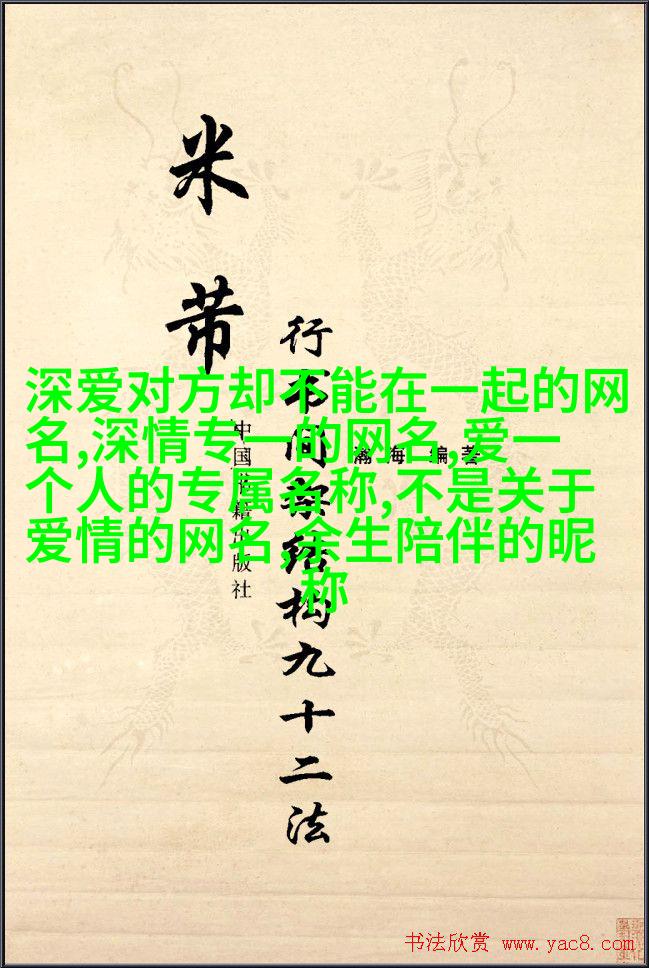 米芾
行书间架结构九十二法
瀚海 编著
中国书籍出版社
深爱对方却不能在一起的网
名,深情专一的网名,爱一
个人的专属名称,不是关于
爱情的网名,余生陪伴的昵
称
书法欣赏 www.yac8.com